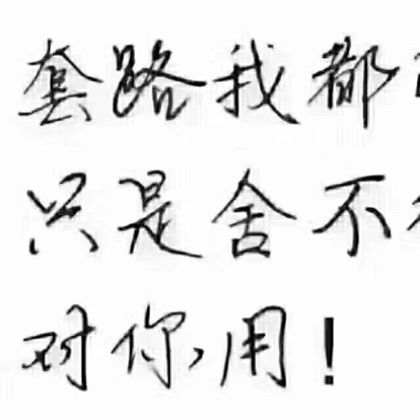 套路我都
只是舍不
对你用！